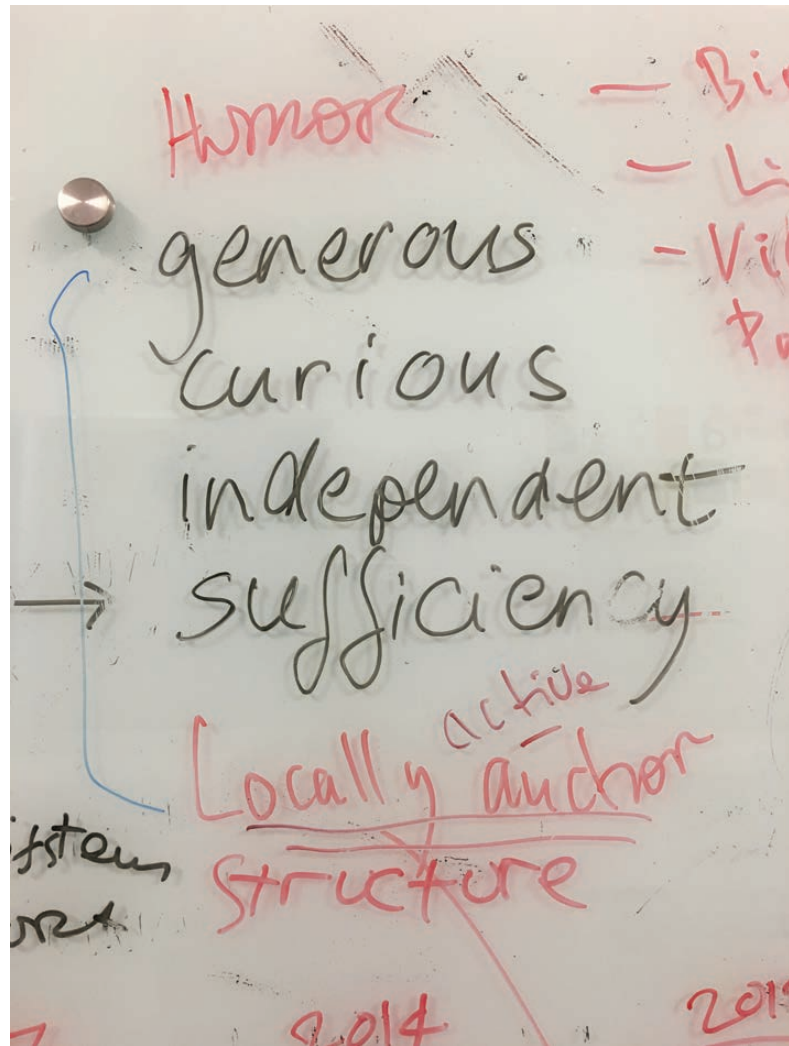 Humor
generous
curious
independent
sufficiency
active
Locally anchor
structure
2014